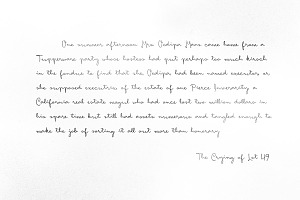 One summer afternoon Mrs Oedipa Maas came home from a
Tupperware party whose hostess had put perhaps too much kirsch
in the fondue to find that she Oedipa had been named executor or
she supposed executrix of the estate of one Pierce Inverarity a
California real estate mogul who had once lost two million dollars in
his spare time but still had assets numerous and tangled enough to
make the job of sorting it all out more than honorary
The Crying of Lot 49